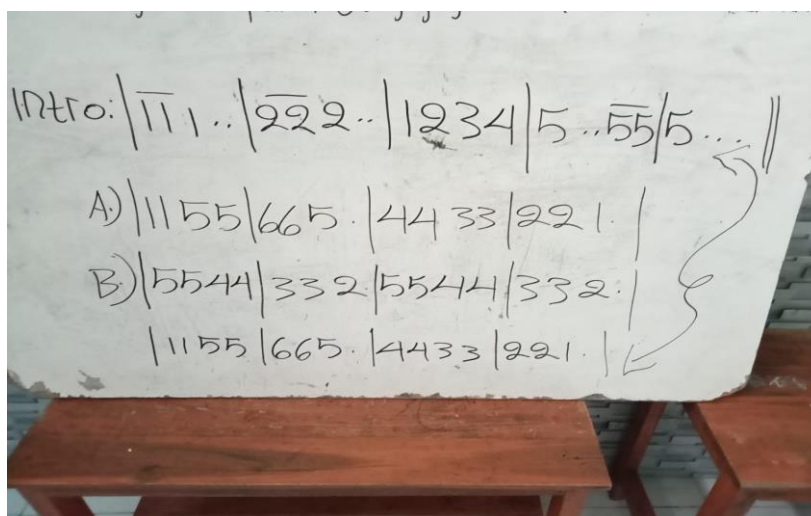 Intro: | 1̅1̅ 1 . . | 2̅2̅ 2 . . | 1 2 3 4 | 5 . . 5̅5̅ | 5 . . . ||
A.) | 1 1 5 5 | 6 6 5 . | 4 4 3 3 | 2 2 1 . |
B.) | 5 5 4 4 | 3 3 2 | 5 5 4 4 | 3 3 2 . |
| 1 1 5 5 | 6 6 5 . | 4 4 3 3 | 2 2 1 . |